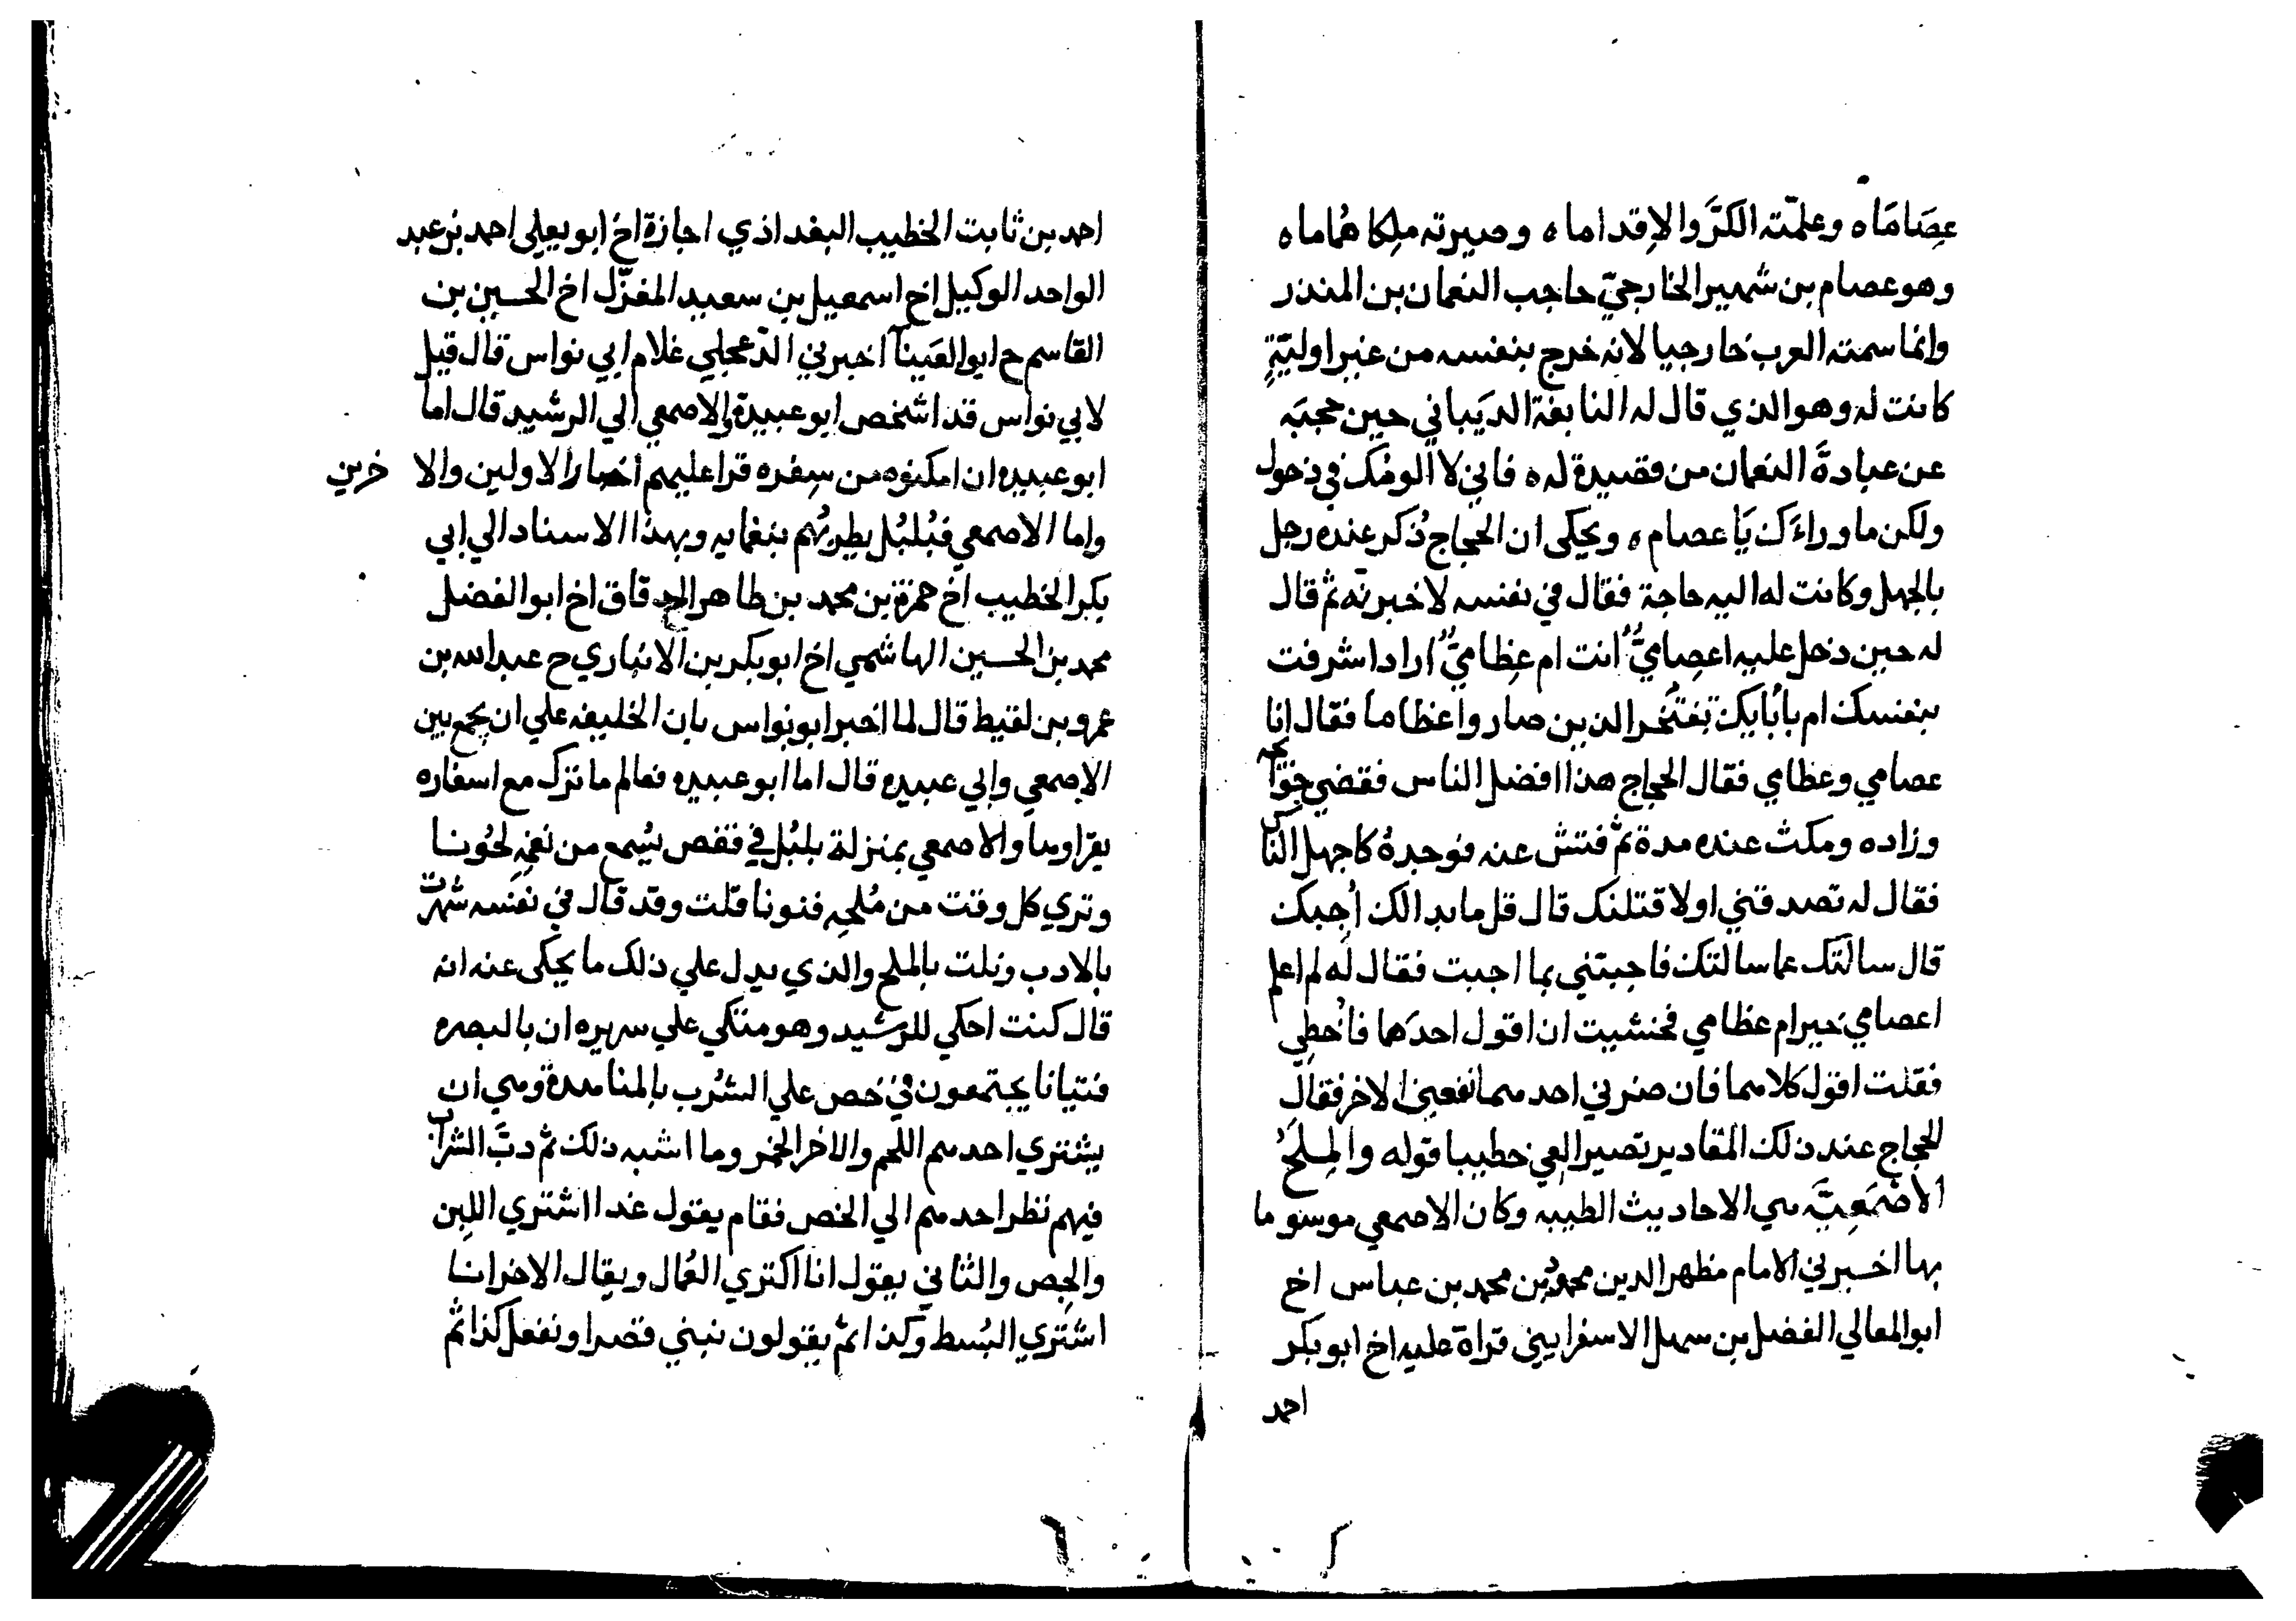 عِصَامَاه وعلمّته الكَرَّ والاِقداما ه وصيرته ملِكا هُماما ه
وهو عصام بن شهير الخارجيّ حاجب النعمان بن المنذر
وانما سمته العرب خارجيا لانه خرج بنفسه من غير اوليّةٍ
كانت له وهو الذي قال له النابغة الذيباني حين حجبَه
عن عيادةَ النعمان من قصيدة له ه فاني لا الومُك في دخول
ولكن ما وراءَك يَا عصام ه ويحكى ان الحجاج ذُكر عنده رجل
بالجهل وكانت له اليه حاجة فقال في نفسه لاخبرنّه ثم قال
له حين دخل عليه اعِصاميٌّ انت ام عِظاميٌّ اراد اشرفت
بنفسك ام بأبايك تفتخر الذين صاروا عظاما فقال انا
عصامي وعظامي فقال الحجاج هذا افضل الناس فقضي حوآيجه
وزاده ومكث عنده مدة ثم فتش عنه فوجدهُ كاجهل الناس
فقال له تصدقني اولا قتلنك قال قل ما بدا لك اُجِبك
قال سالَتك عما سالتك فاجبتني بما اجبت فقال له لم اعلم
اعصامي خير ام عظامي فخشيت ان اقول احدَهما فاُخطِي
فقلت اقول كلاهما فان ضرني احدهما نفعني الاخر فقال
الحجاج عند ذلك المقادير تصير العي خطيبا قوله والمِلَحُ
الاصْمَعِيَّه هي الاحاديث الطيبه وكان الاصمعي موسوما
بها اخبرني الامام مظهر الدين محمود بن محمد بن عباس اخ
ابو المعالي الفضل بن سهل الاسفراييني قراة عليه اخ ابو بكر
احمد
احمد بن ثابت الخطيب البغداذي اجازة اخ ابو يعلى احمد بن عبد
الواحد الوكيل اخ اسمعيل بن سعيد المغزّل اخ الحسين بن
القاسم ح ابو العَينآ اخبرني الدعجلي غلام ابي نواس قال قيل
لابي نواس قد اشخص ابو عبيدة والاصمعي الي الرشيد قال اما
ابو عبيده ان امكنوه من سِفره قرا عليهم اخبار الاولين والاخرين
واما الاصمعي فبُلبُل يطربُهم بنغماته وبهذا الاسناد الي ابي
بكر الخطيب اخ حمزة بن محمد بن طاهر الدقاق اخ ابو الفضل
محمد بن الحسين الهاشمي اخ ابو بكر بن الانباري ح عبد الله بن
عمرو بن لقيط قال لما اخبر ابو نواس بان الخليفه علي ان يجمع بين
الاصمعي وابي عبيده قال اما ابو عبيده فعالم ما ترك مع اسفاره
يقراوها والاصمعي بمنزلة بلبُل في قفص تسُمع من نغمِه لحُونا
وتري كل وقت من مُلحِه فنونا قلت وقد قال في نفسه شهرت
بالادب ونلت بالملح والذي يدل علي ذلك ما يحكى عنه انه
قال كنت احكي للرشيد وهو متكي علي سريره ان بالبصره
فتيانا يجتمعون في خص علي الشُرب بالمناهدة وهي ان
يشتري احدهم اللحم والاخر الخمر وما اشبه ذلك ثم دبَّ الشراب
فيهم نظر احدهم الي الخص فقام يقول غدا اشتري اللبِن
والجِص والثاني يقول انا اكتري العُمال ويقال الاخر انا
اشتري البُسط وكذا ثم يقولون نبني قصرا ونفعل كذا ثم